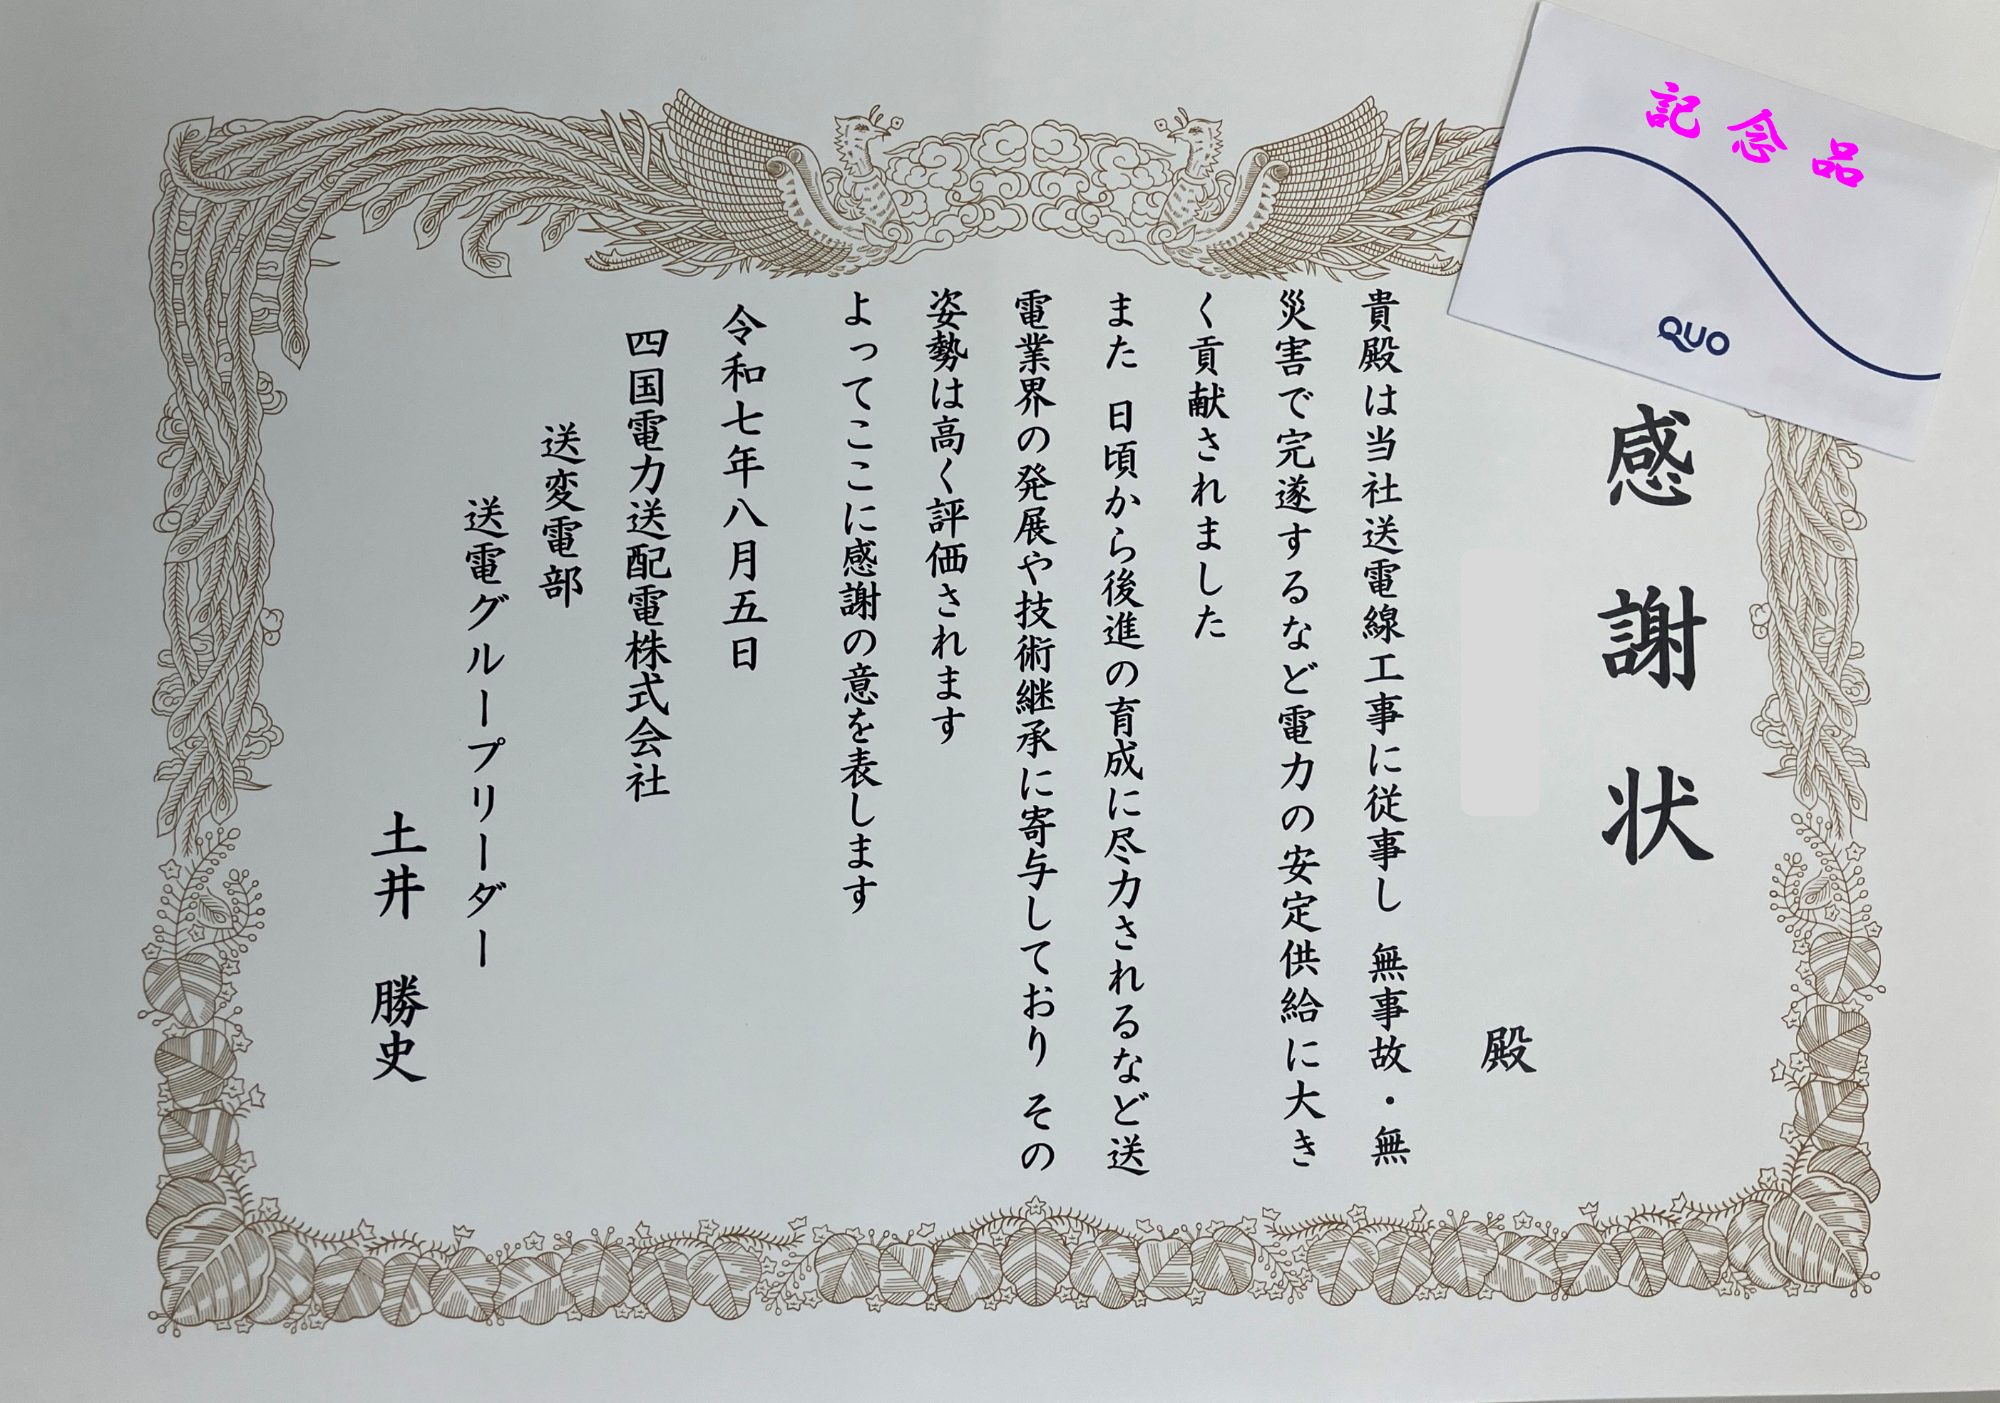 記念品
QUO
感謝状
殿
貴殿は当社送電線工事に従事し 無事故・無
災害で完遂するなど電力の安定供給に大き
く貢献されました
また 日頃から後進の育成に尽力されるなど送
電業界の発展や技術継承に寄与しており その
姿勢は高く評価されます
よってここに感謝の意を表します
令和七年八月五日
四国電力送配電株式会社
送変電部
送電グループリーダー
土井 勝史